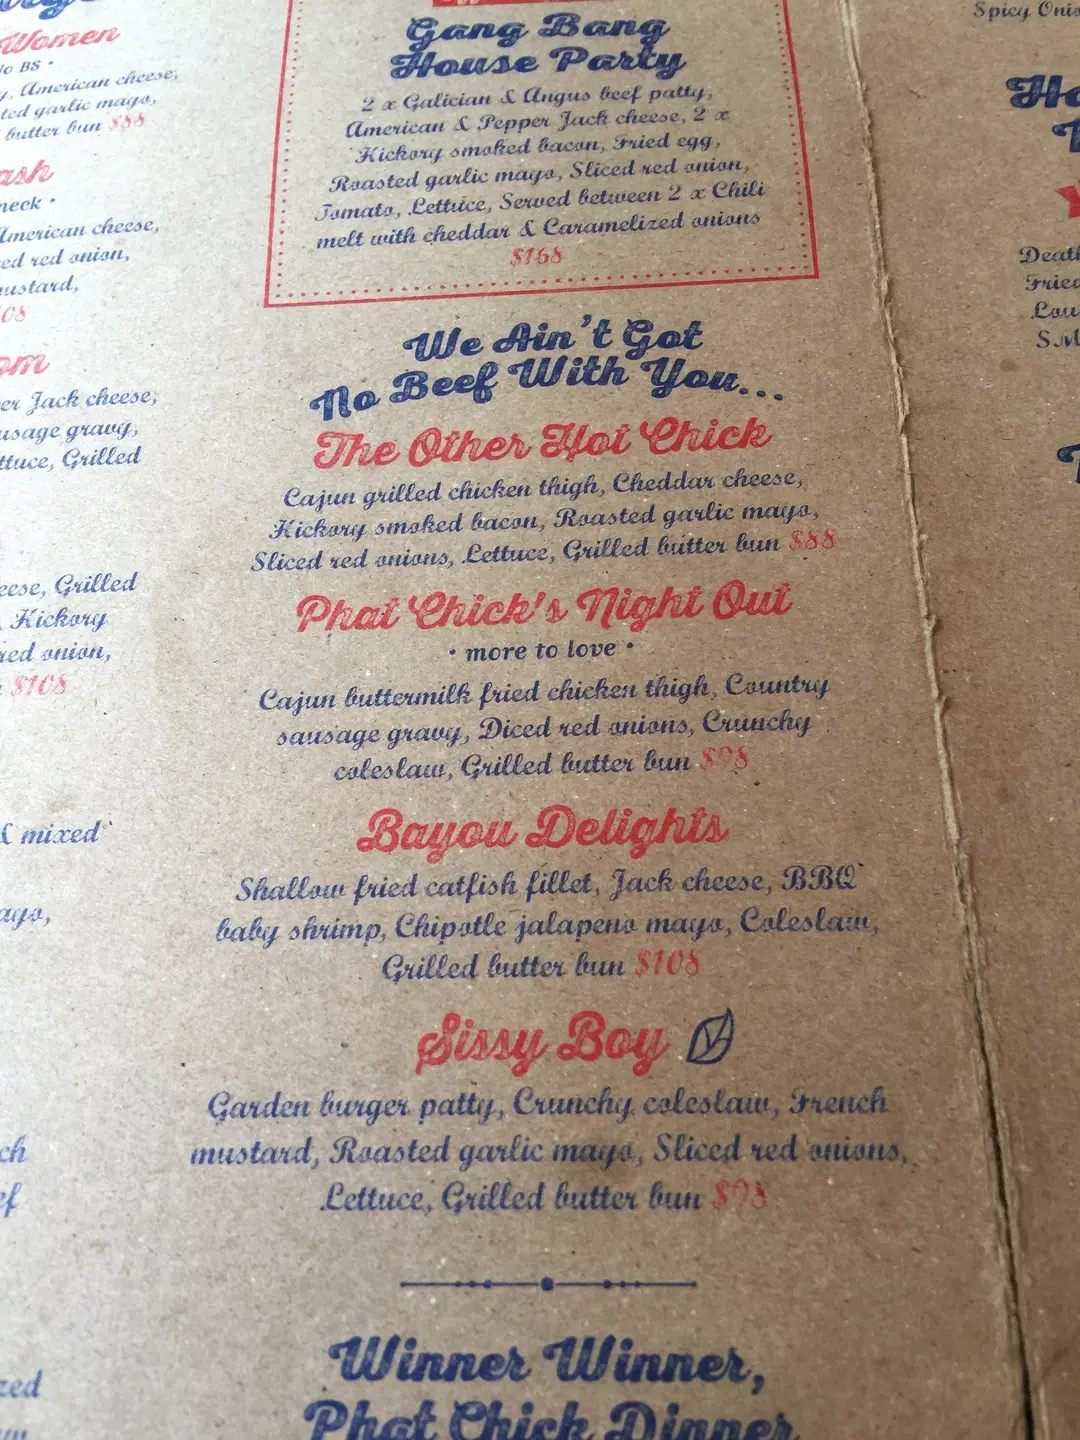 Women
No BS •
American cheese,
garlic mayo,
butter bun $88
neck •
American cheese,
red onion,
mustard,
Jack cheese,
gravy,
Grilled
Grilled
Hickory
red onion,
$108
& mixed
mayo,
Gang Bang
House Party
2 x Galician & Angus beef patty,
American & Pepper Jack cheese, 2 x
Hickory smoked bacon, Fried egg,
Roasted garlic mayo, Sliced red onion,
Tomato, Lettuce, Served between 2 x Chili
melt with cheddar & Caramelized onions
$168
We Ain't Got
No Beef With You...
The Other Hot Chick
Cajun grilled chicken thigh, Cheddar cheese,
Hickory smoked bacon, Roasted garlic mayo,
Sliced red onions, Lettuce, Grilled butter bun $88
Phat Chick's Night Out
• more to love •
Cajun buttermilk fried chicken thigh, Country
sausage gravy, Diced red onions, Crunchy
coleslaw, Grilled butter bun $98
Bayou Delights
Shallow fried catfish fillet, Jack cheese, BBQ
baby shrimp, Chipotle jalapeno mayo, Coleslaw,
Grilled butter bun $108
Sissy Boy
Garden burger patty, Crunchy coleslaw, French
mustard, Roasted garlic mayo, Sliced red onions,
Lettuce, Grilled butter bun $98
Winner Winner,
Phat Chick Dinner
Spicy